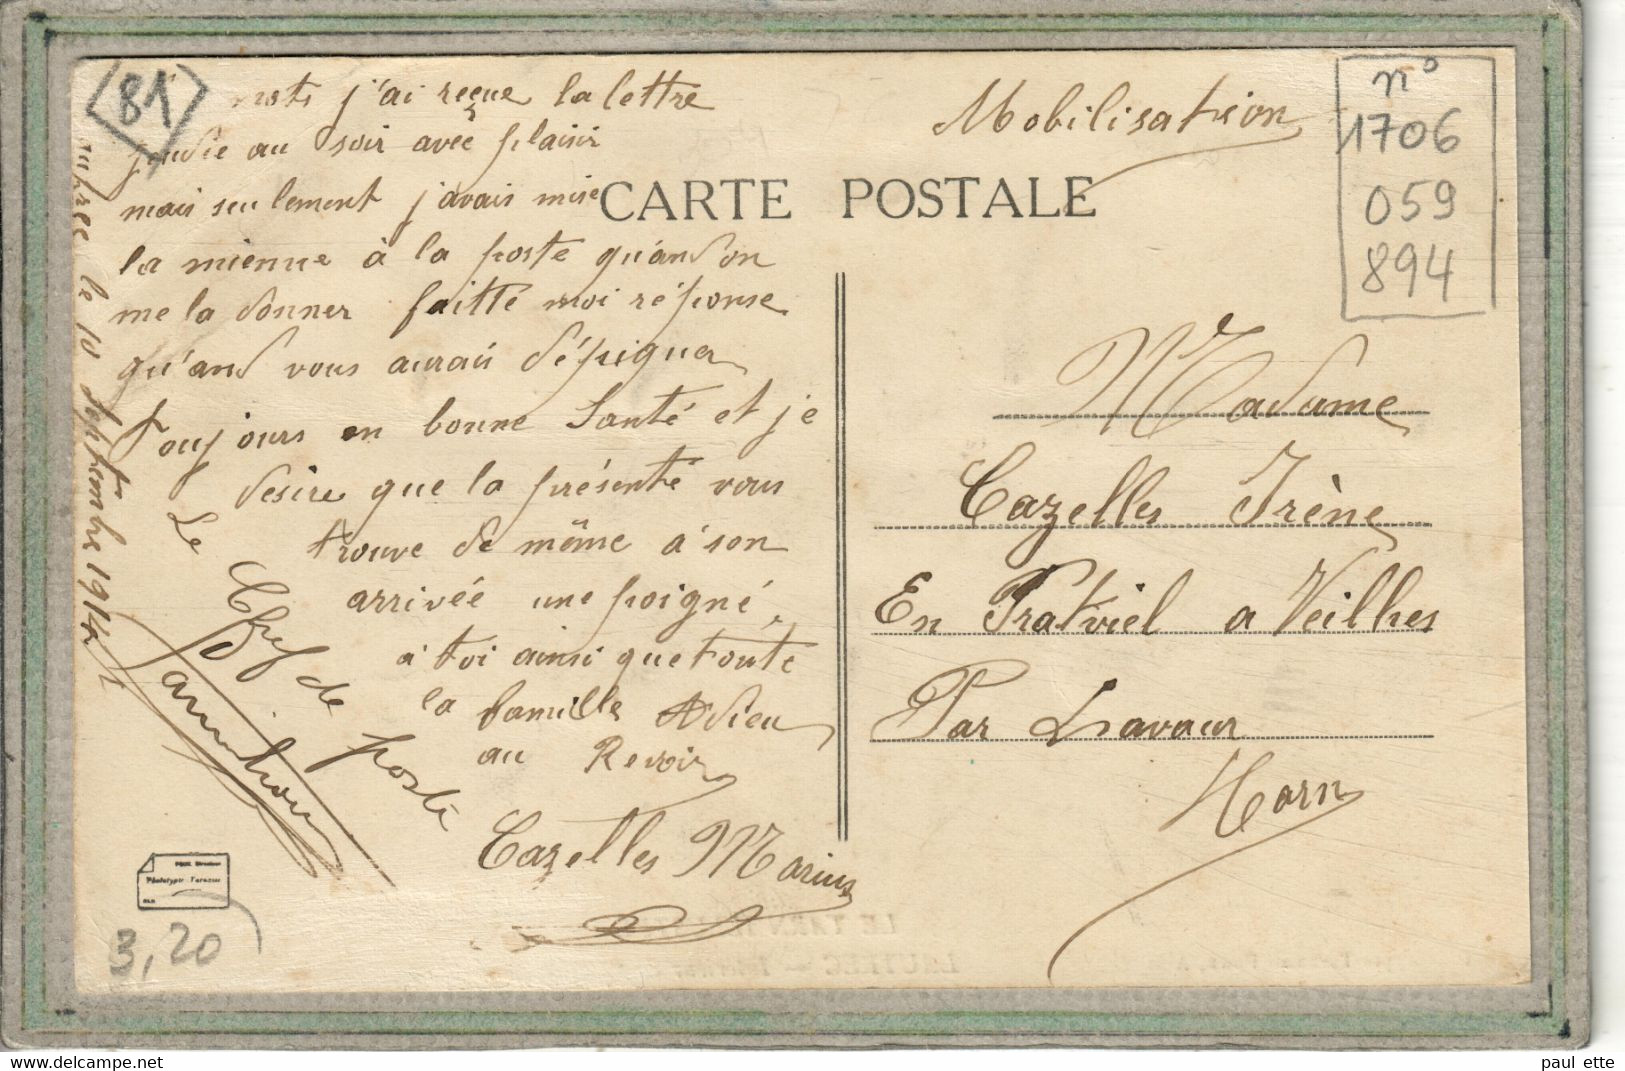 81
mots j'ai reçue la lettre
jeudie au soir avec plaisir
mais seulement j'avais mise
la mienne à la poste qu'and on
me la donner faitte moi réponse
qu'and vous aurais dépiquer
Toujours en bonne Santé et je
desire que la présenté vous
trouve de même a son
arrivée une poigné
a toi ainsi que toute
la famille Adieu
au Revoir
Cazelles Marius
le 10 septembre 1914
Le Chef de poste
3,20
CARTE POSTALE
Mobilisation
n°
1706
059
894
Madame
Cazelles Irène
En Pratviel a Veilhes
Par Lavaur
Tarn
paul ette
https://www.delcampe.net